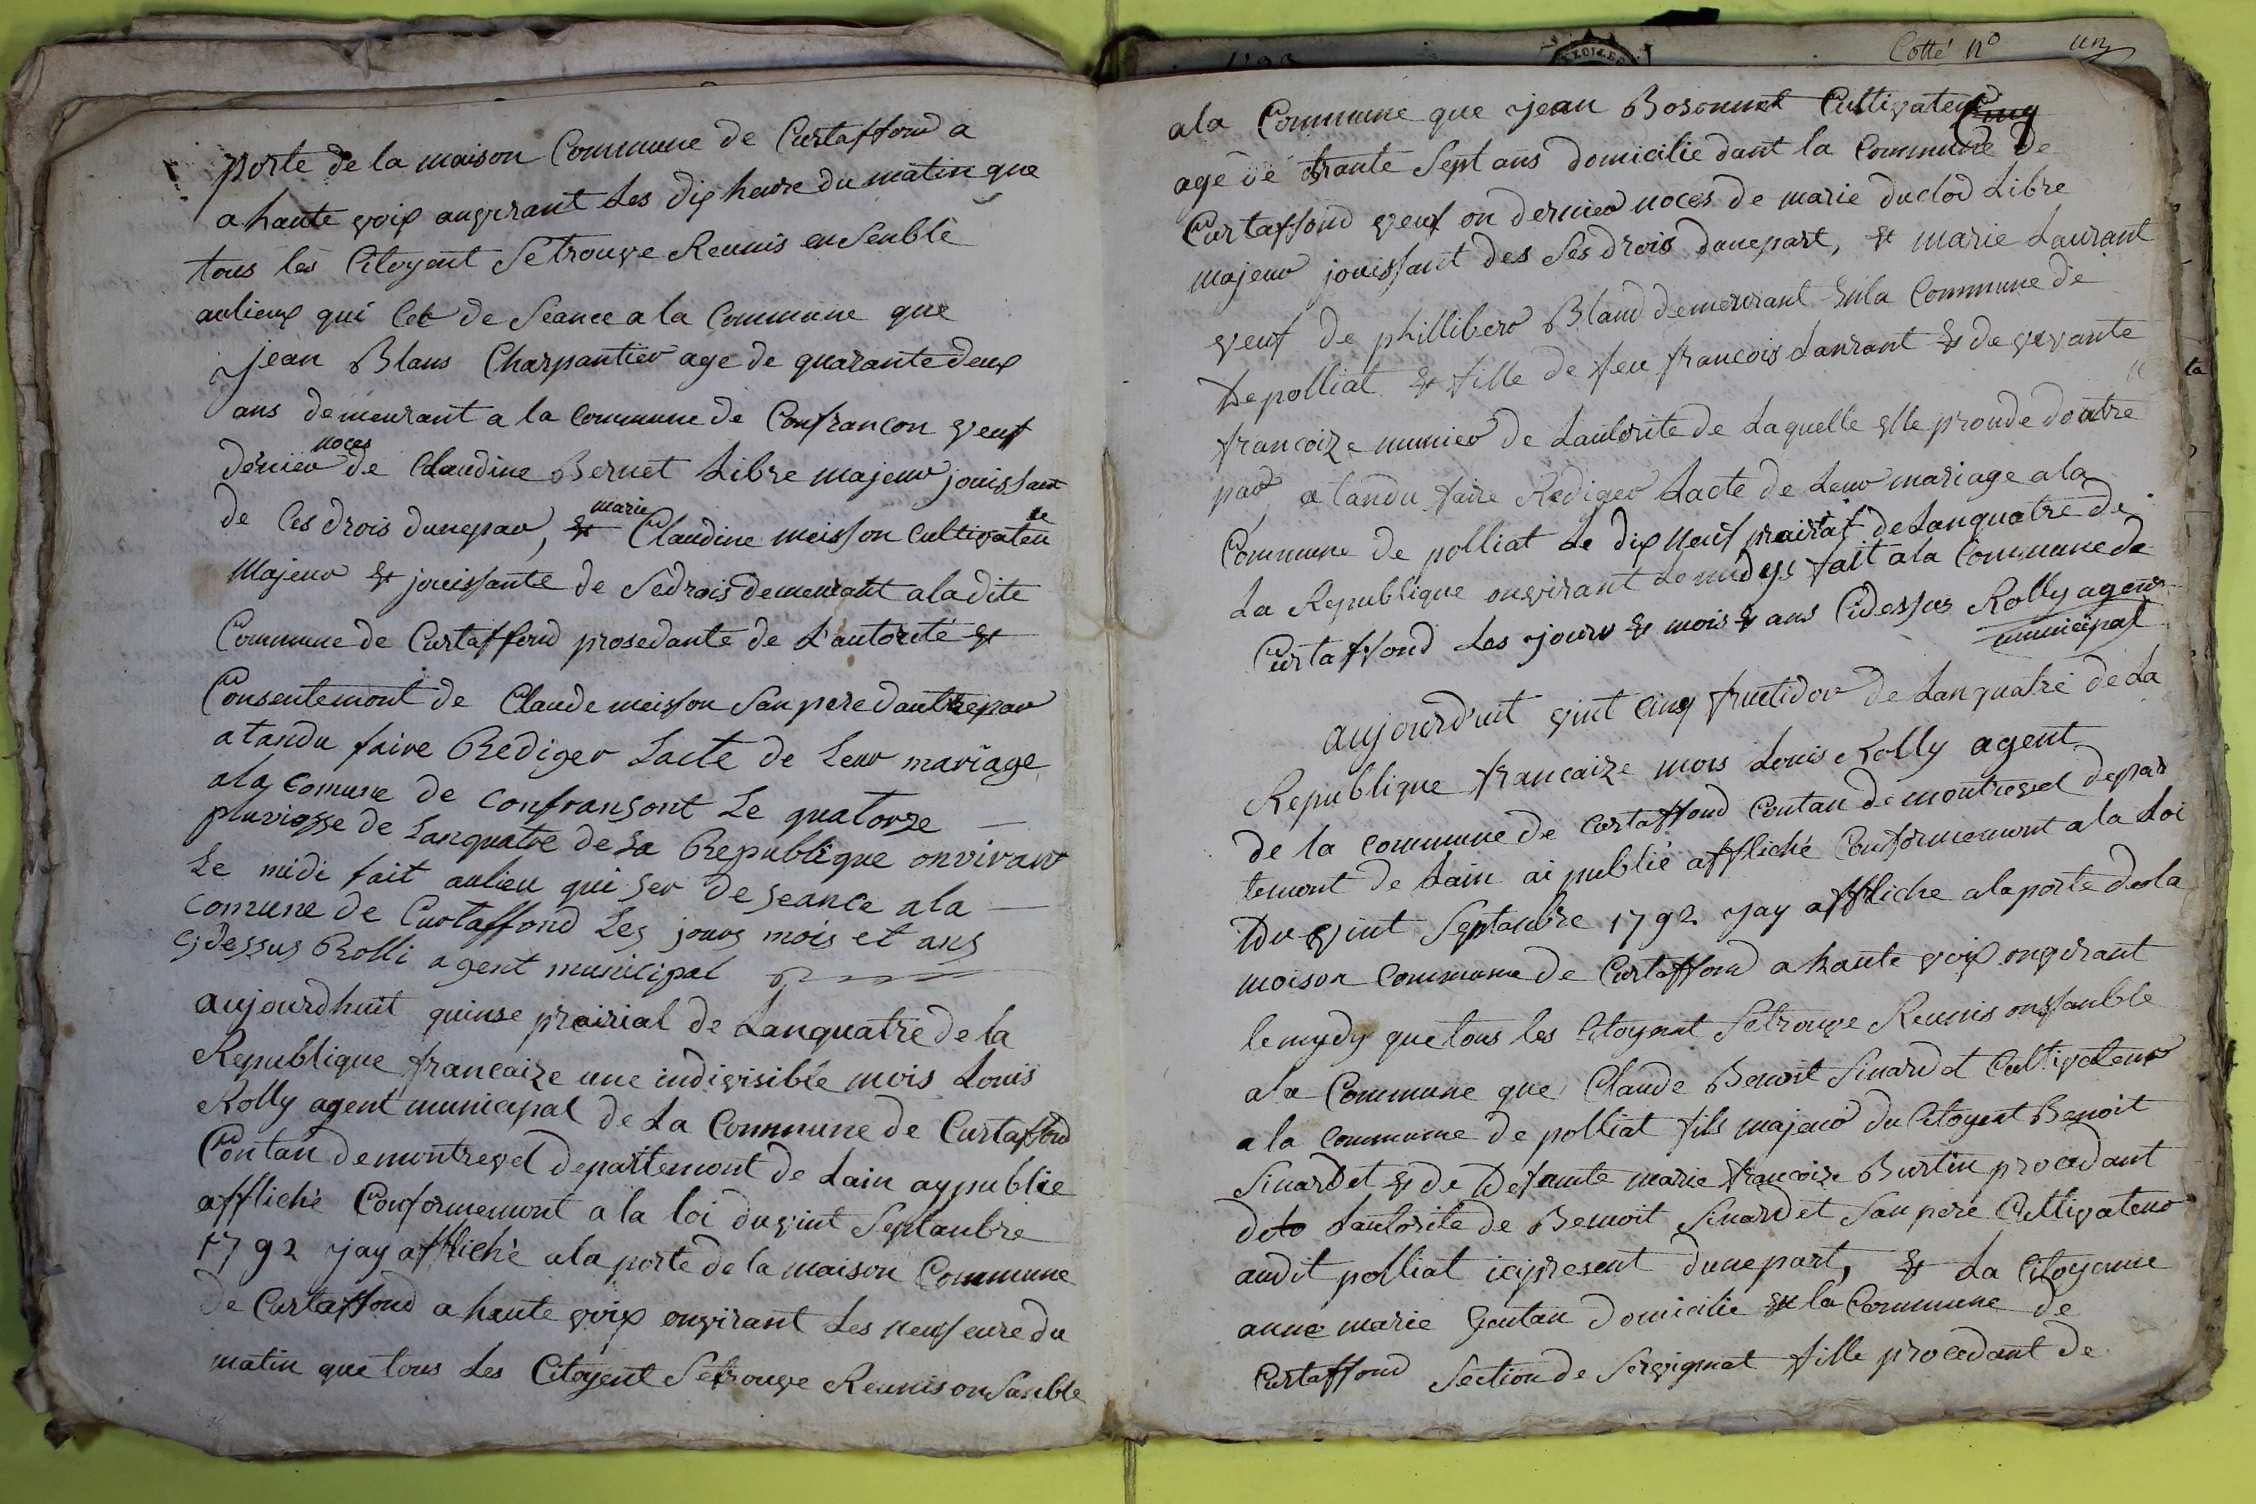 porte de la maison Commune de Curtaffond a
a haute voix anvirant Les dix heure du matin que
tous les Citoyent Se trouve Reunis en senble
aulieux qui Cet de Seance a la Commune que
jean Blanc Charpantier age de quarante deux
ans demeurant a la commune de Confrancon veuf
dernier noces de Claudine Bernet Libre majeur jouissant
de Ces drois dunepar, et marie Claudine moisson Cultivateu se
Majeur et jouissante de Sedrois demeurant a la dite
Commune de Curtaffond prosedante de L'autorité et
Consentemont de Claude moisson San pere dautrepar
atandu faire Rediger Lacte de Leur mariage
ala Comune de confransont Le quatorze —
pluviosse de Lanquatre de La Republique onvirant
Le midi fait aulieu qui ser de seance a la —
comune de Curtaffond Les jours mois et ans
cidessus Rolli agent municipal
aujourdhuit quinse prairial de Lanquatre de la
Republique francaize une indivisible mois Louis
Rolly agent municipal de La Commune de Curtaffond
Contan de montrevel departemont de Lain aypublie
affliché Conformemont a la loi duvint Septanbre
1792 jay affliché a la porte de la maison Commune
de Curtaffond a haute voix onvirant Les neuf eure du
matin que tous Les Citoyent Setrouve Reunis on Sanble
Cotté nº un
ala Commune que jean Bosonnet Cultivateur Cinq
agé dé trante Sept ans domicilie dant la Commune de
Curtaffond veuf on dernier noces de marie duclod Libre
majeur jouissant des Ses drois dunepart, et marie Laurant
veuf de phillibero Bland demeurant En la Commune de
de polliat et fille de feu francois Laurant et de vivante
francoize munier de Lautorite de Laquelle elle prende doutre
par atandu faire Rediger Lacte de Leur mariage a la
Commune de polliat Le dix neuf prairial de Lanquatre de
La Republique onvirant Le midys fait a la Commune de
Curtaffond Les jours et mois et ans Cidessus Rolly agent
municipal
aujourduit vint cinq fructidor de Lanquatre de La
Republique francaize mois Louis Rolly agent
de la commune de Curtaffond Contan de montrevel depar
temont de Lain ai publié affliché Conformemont a la Loi
Du vint Septanbre 1792 jay affliche a la porte de la
maison Commune de Curtaffond a haute voix onvirant
le mydy que tous les Citoyent Setrouve Reunis onssanble
a la Commune que Claude Benoit Sinardet Cultivateur
a la commune de polliat fils majeur du Citoyent Benoit
Sinardet et de Defunte marie francoize Burtin procedant
de Lautorite de Benoit Sinardet San pere Cultivateur
audit polliat icypresent dunepart, et La Citoyenne
anne marie Gontan domicilie en la Commune de
Curtaffond Section de Servignat fille procedant de